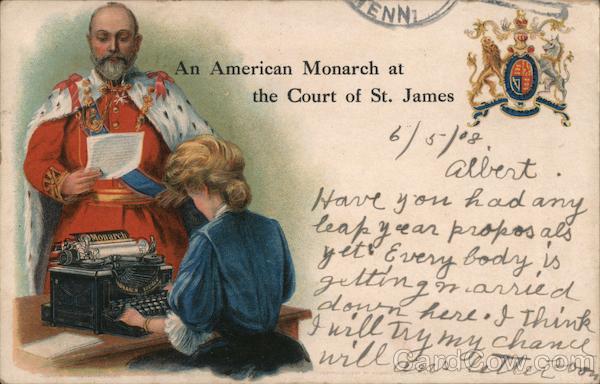 TENN
An American Monarch at
the Court of St. James
6/5/08
Albert.
Have you had any
leap year proposals
yet. Every body is
getting married
down here. I think
I will try my chance
will
Monarch
CardCow.com